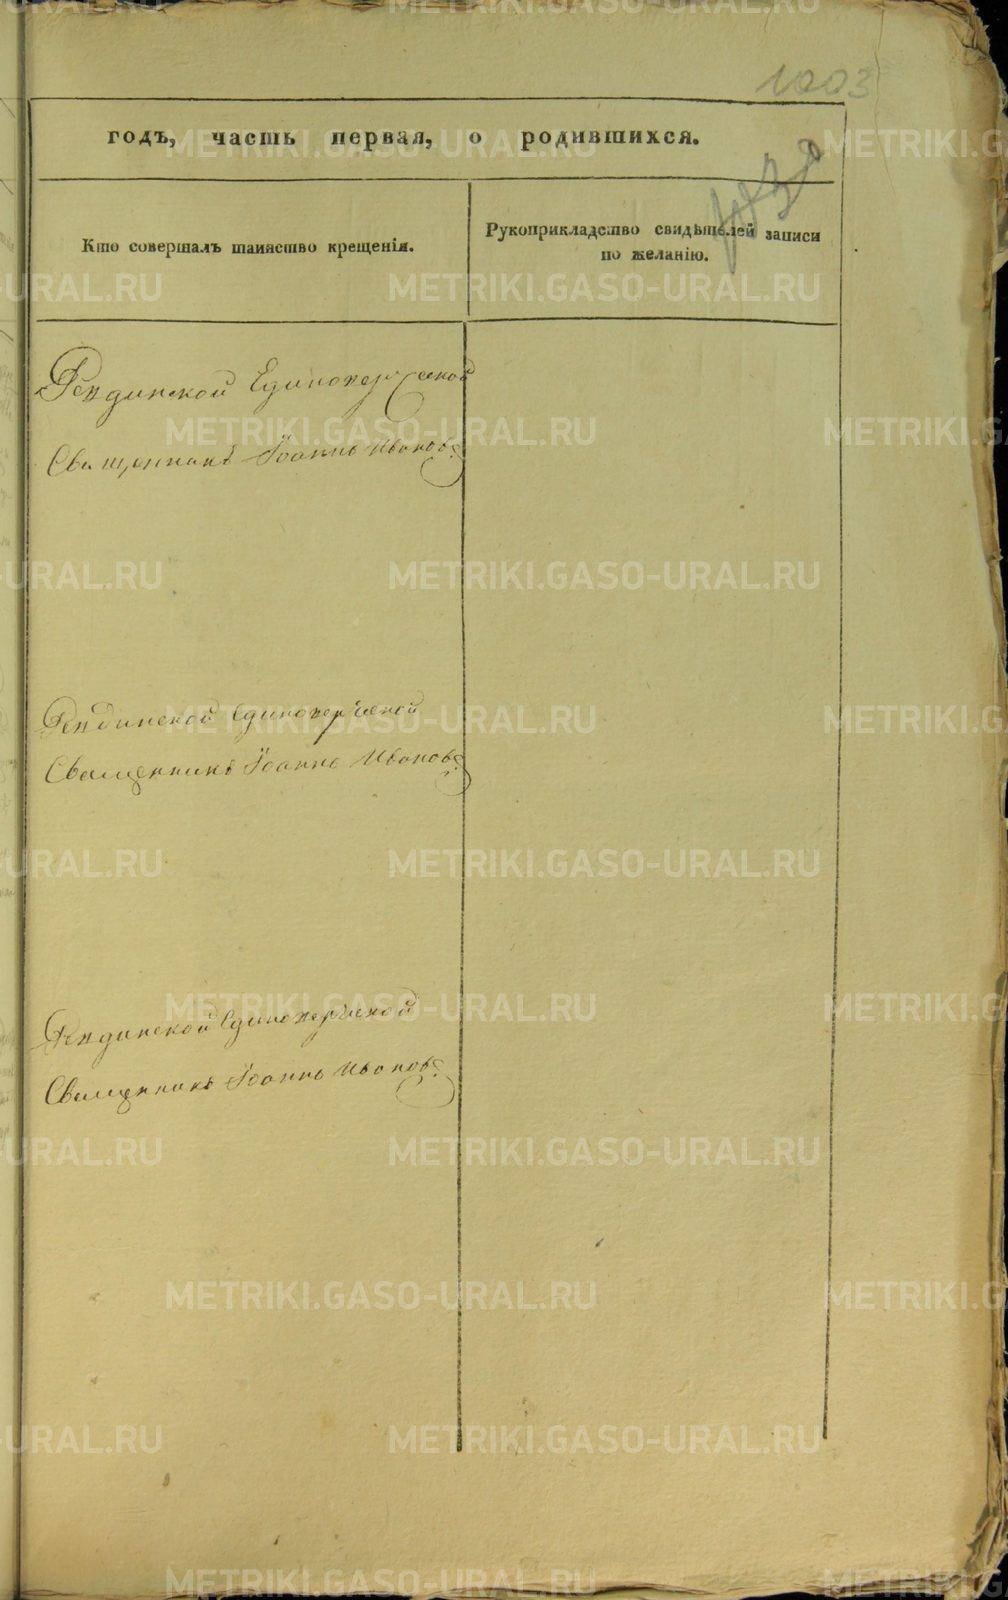 1003
годъ, часть первая, о родившихся.
Кто совершалъ таинство крещенія.
Рукоприкладство свидѣтелей записи
по желанію.
Единоверческой
Священникъ Іоаннъ Ивановъ
Единоверческой
Священникъ Іоаннъ Ивановъ
Единоверческой
Священникъ Іоаннъ Ивановъ
METRIKI.GASO-URAL.RU